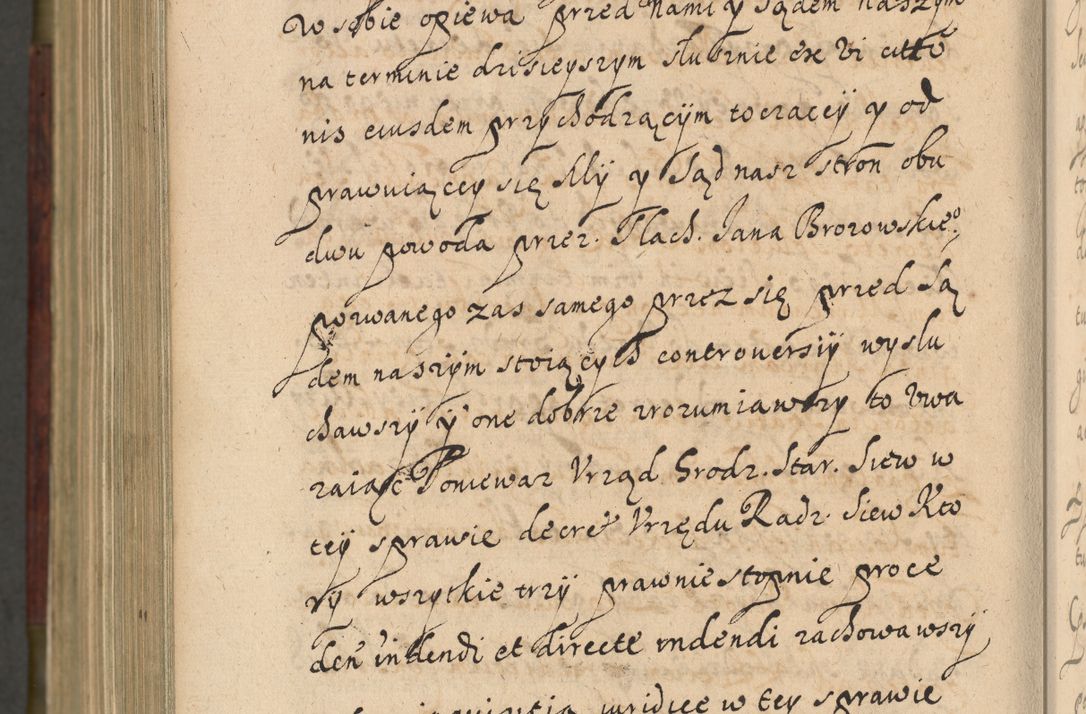 w sobie opiewa przed nami y sądem naszym
na terminie dzisieyszym słusznie ex vi citto
nis eiusdem przychodzącym toczącey y od
prawuiącey się My y Sąd nasz stron obu
dwu powoda przez. Szlach. Jana Brozowskie°
pozwanego zas samego przez się przed Są
dem naszym stoiących controversiy wysłu
chawszy y one dobrze zrozumiawszy to uwa
zaiąc Poniewaz Urząd Grodz. Star. Siew w
tey sprawie decret Urzędu Radz. Siew Kto
ry wszytkie trzy prawnie stopnie proce
den indendi et directe indendi zachowawszy
iuridice w tey sprawie